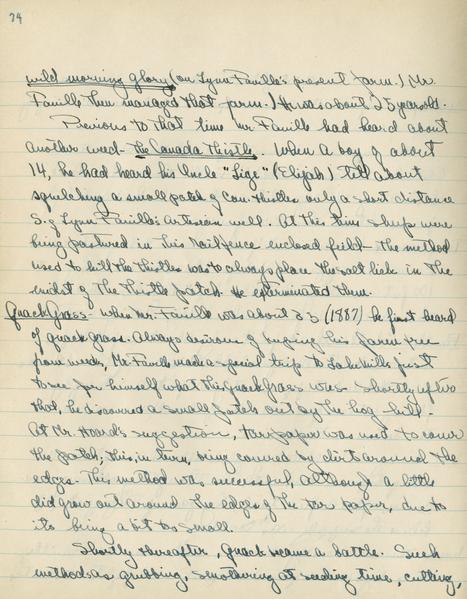 74
wild morning glory (on Lynn Faville's present farm.) Mr.
Faville then managed that farm.) He was about 25 years old.
Previous to that time Mr Faville had heard about
another weed - the Canada Thistle. When a boy of about
14, he had heard his Uncle "Lige" (Elijah) tell about
squelching a small patch of Can. Thistles only a short distance
S. of Lynn Faville's artesian well. At this time sheep were
being pastured in this rail fence enclosed field - the method
used to kill the thistles was to always place the salt lick in the
midst of the thistle patch. He exterminated them.
Quack Grass - When Mr. Faville was about 23 (1887) he first heard
of quack grass. Always desirous of keeping his farm free
from weeds, Mr. Faville made a special trip to Lake Mills just
to see for himself what this quack grass was. Shortly after
that, he discovered a small patch out by the hog
At Mr. Hoard's suggestion, tar paper was used to cover
the patch; this, in turn, being covered by dirt around the
edges. This method was successful, although a little
did grow out around the edges of the tar paper, due to
its being a bit too small.
Shortly thereafter, Quack became a battle. Such
methods as grubbing, smothering at seeding time, cutting,